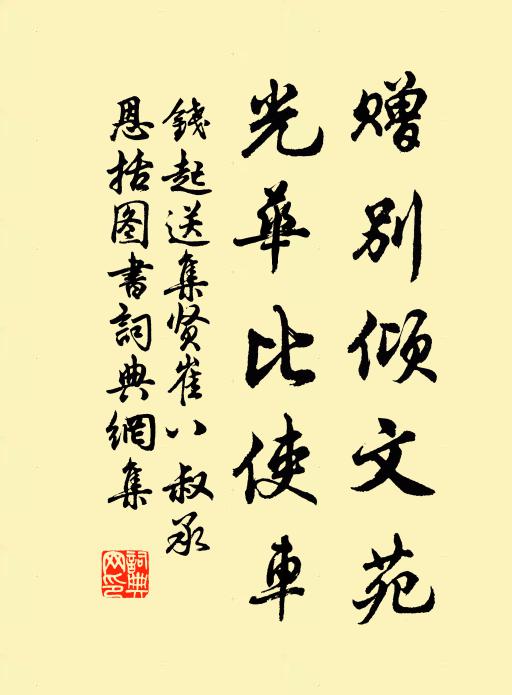 赠别倾文苑
光华比使车
錢起送集贤崔八叔承
恩括图書詞典網集
詞典
网印